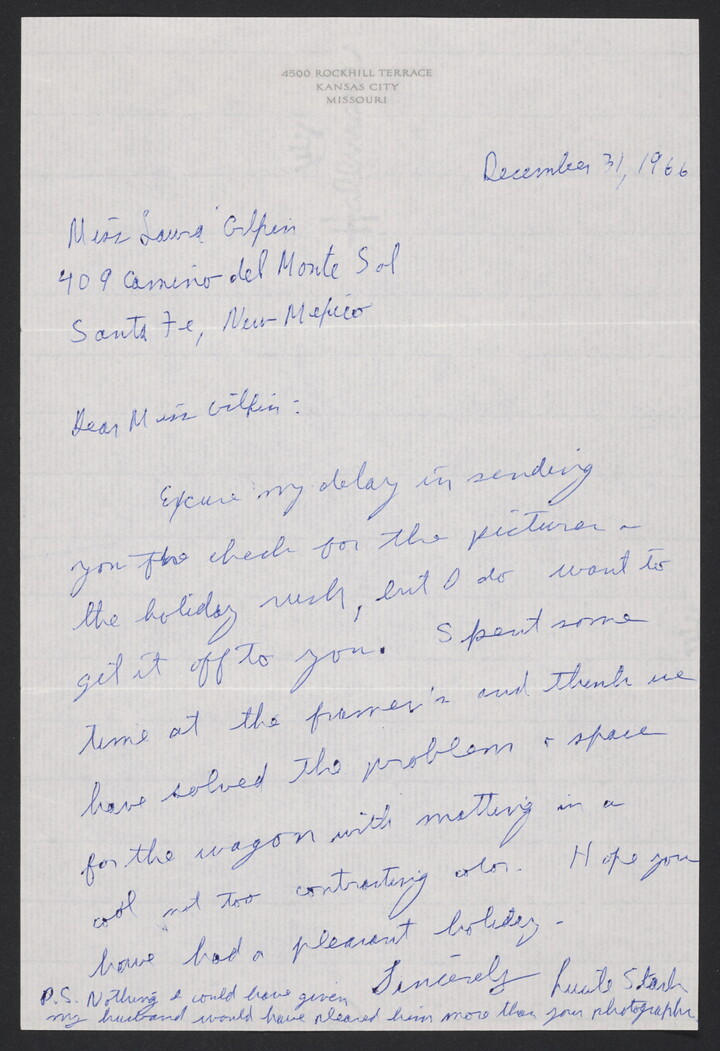 4500 ROCKHILL TERRACE
KANSAS CITY
MISSOURI
December 31, 1966
Miss Laura Gilpin
409 Camino del Monte Sol
Santa Fe, New Mexico
Dear Miss Gilpin:
Excuse my delay in sending
you the check for the pictures -
the holiday rush, but I do want to
get it off to you. Spent some
time at the framer's and think we
have solved the problem & space
for the wagon with matting in a
cool not too contrasting color. Hope you
have had a pleasant holiday -
Sincerely Lucile Stark
P.S. Nothing I could have given
my husband would have pleased him more than your photographs